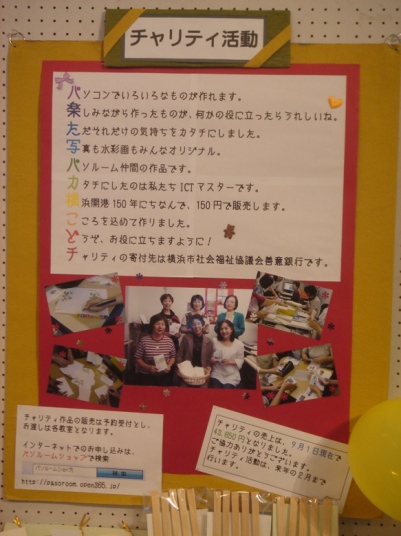 チャリティ活動
パソコンでいろいろなものが作れます。
楽しみながら作ったものが、何かの役に立ったらうれしいね。
ただそれだけの気持ちをカタチにしました。
写真も水彩画もみんなオリジナル。
パソルーム仲間の作品です。
カタチにしたのは私たちICTマスターです。
横浜開港150年にちなんで、150円で販売します。
こころを込めて作りました。
どうぞ、お役に立ちますように！
チャリティの寄付先は横浜市社会福祉協議会善意銀行です。
チャリティ作品の販売は予約受付とし、
お渡しは各教室となります。
インターネットでのお申し込みは、
パソルームショップで検索
検索
チャリティの売上は、9月1日現在で
ご協力ありがとうございます。
チャリティ活動は、来年の2月まで
行います。